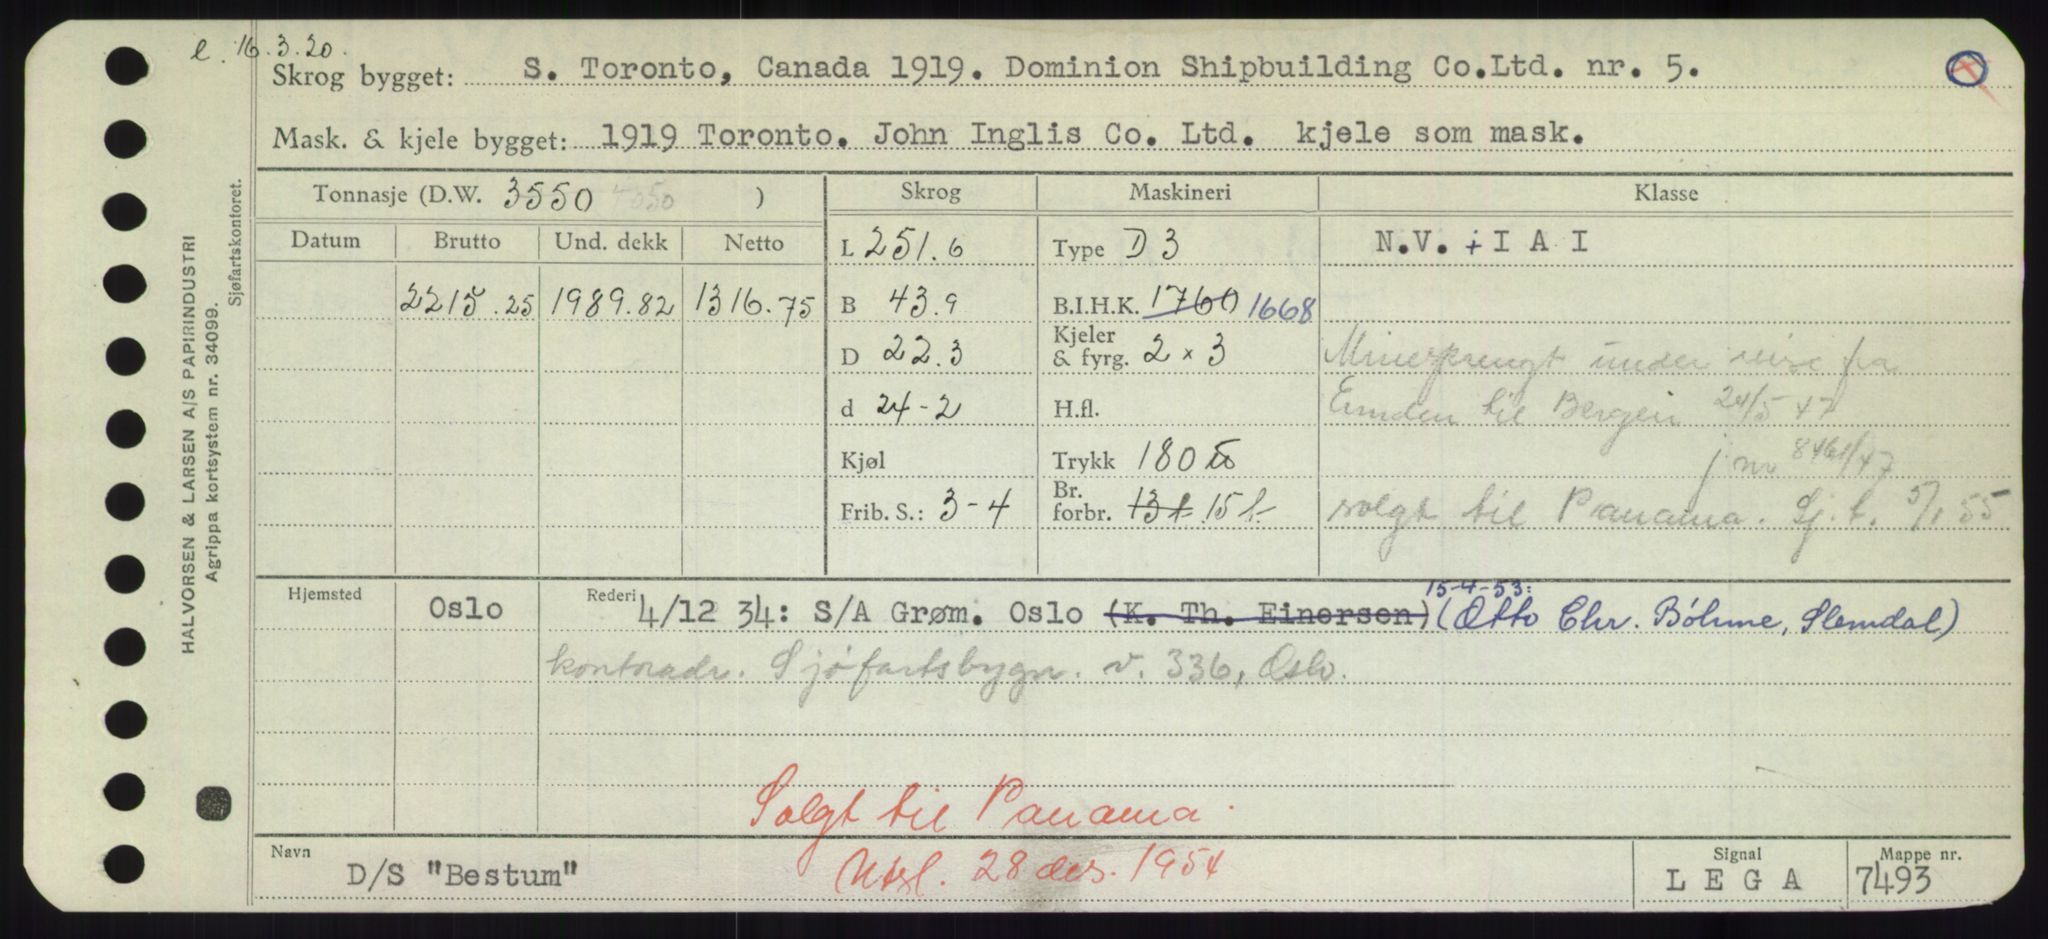 e. 16.3.20.
Skrog bygget: S. Toronto, Canada 1919. Dominion Shipbuilding Co.Ltd. nr. 5.
Mask. & kjele bygget: 1919 Toronto. John Inglis Co. Ltd. kjele som mask.
Tonnasje (D.W. 3550 4050 )
Skrog
Maskineri
Klasse
Datum Brutto Und. dekk Netto
L 251.6
Type D 3
N.V. + I A I
2215.25 1989.82 1316.75
B 43.9
B.I.H.K. 1760 1668
D 22.3
Kjeler
& fyrg. 2 x 3
Minesprengt under reise fra
d 24-2
H.fl.
Emden til Bergen 24/5 47
Kjøl
Trykk 180 lb
j nr 8461/47
Frib. S.: 3-4
Br.
forbr. 13 t. 15 t.
solgt til Panama. Sj.t. 5/1 55
Hjemsted Oslo
Rederi 4/12 34: S/A Grøm. Oslo (K. Th. Einersen) 15-4-53: (Otto Chr. Böhme, Slemdal)
kontoradr. Sjöfartsbygn. v. 336, Oslo.
Solgt til Panama.
Utsl. 28 des. 1954
Navn D/S "Bestum"
Signal L E G A
Mappe nr. 7493
HALVORSEN & LARSEN A/S PAPIRINDUSTRI
Agrippa kortsystem nr. 34099.
Sjøfartskontoret.